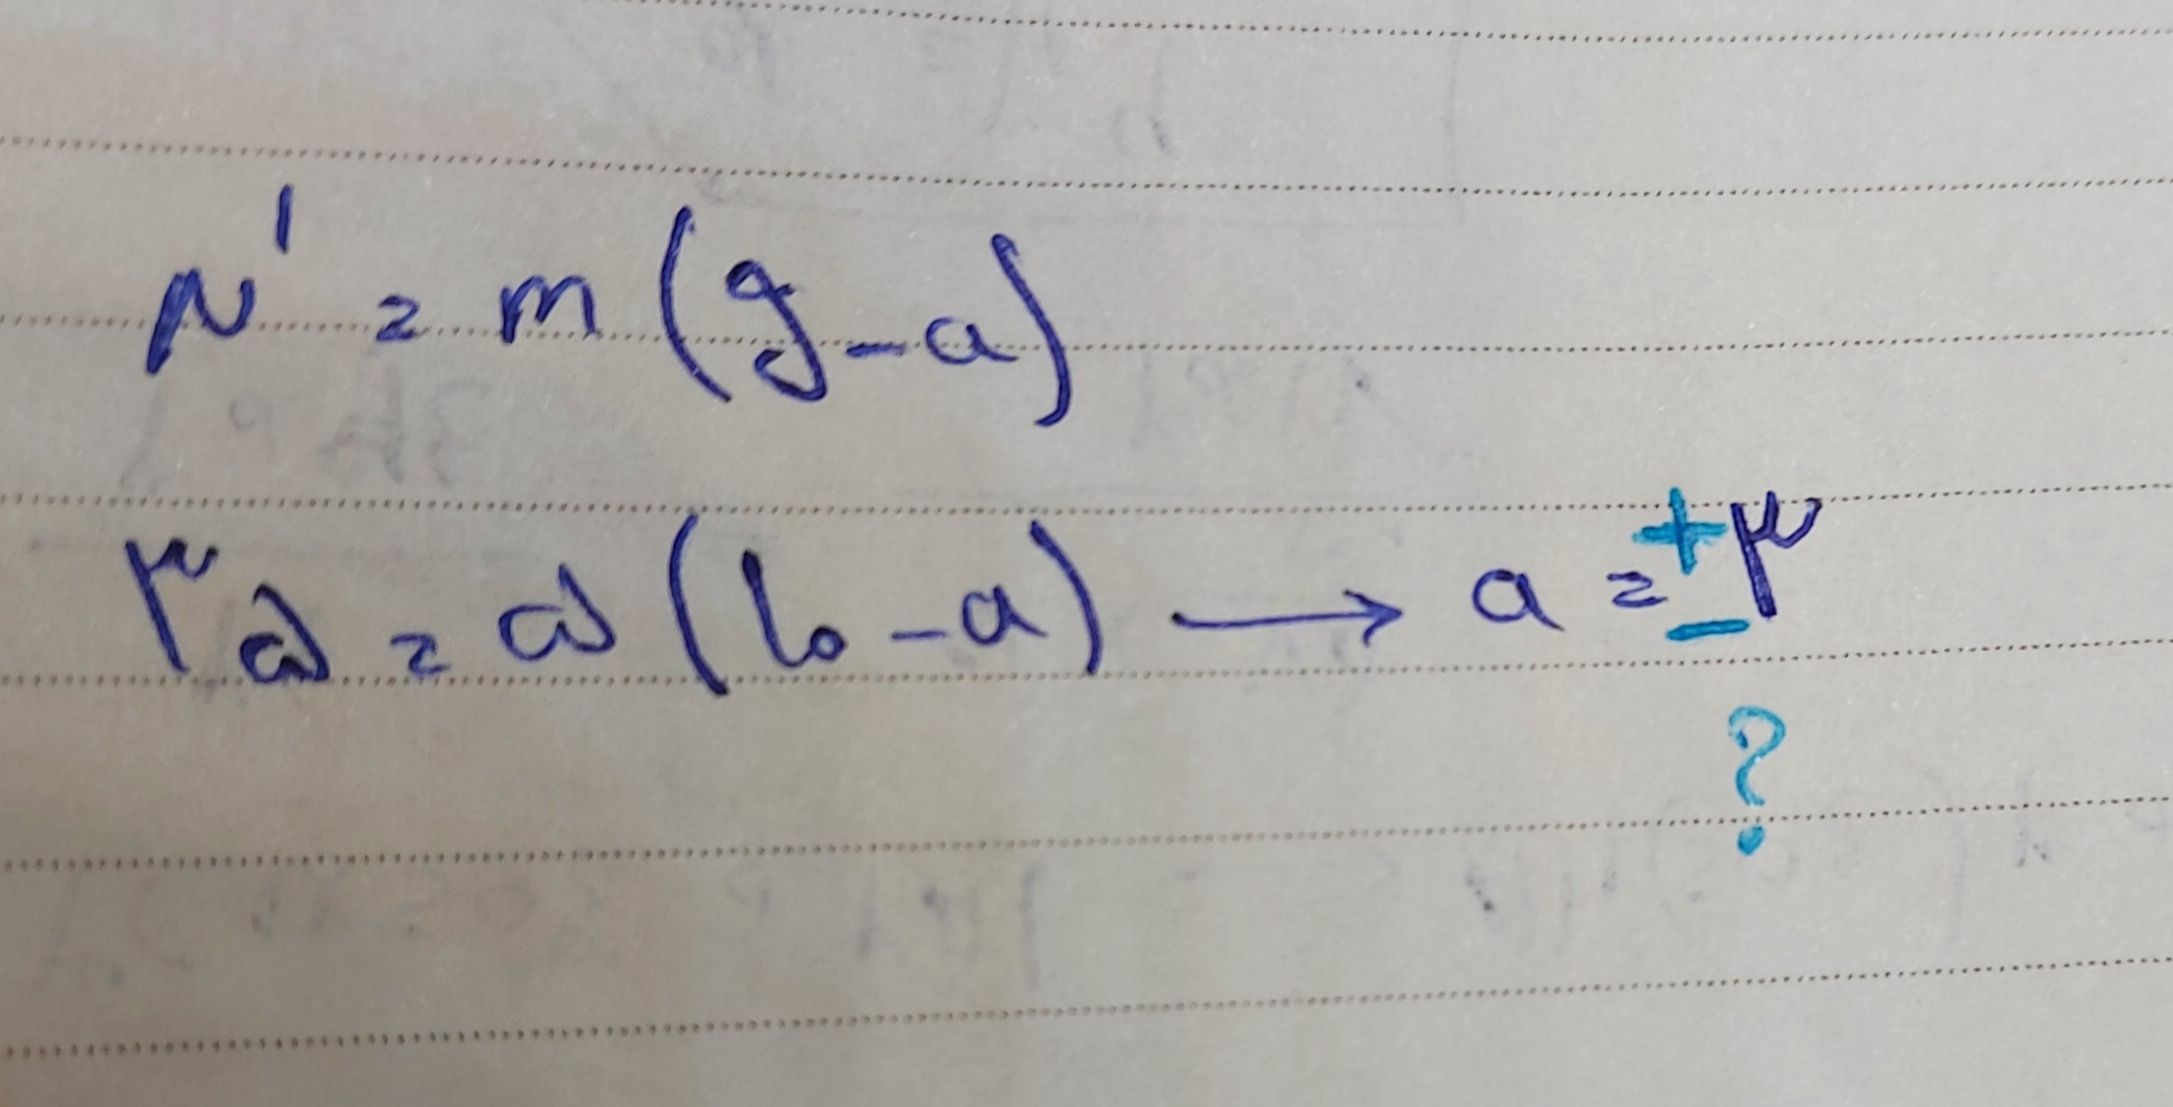 N' = m(g-a)
۳۵ = ۵(۱۰-a) → a = ±۳
?